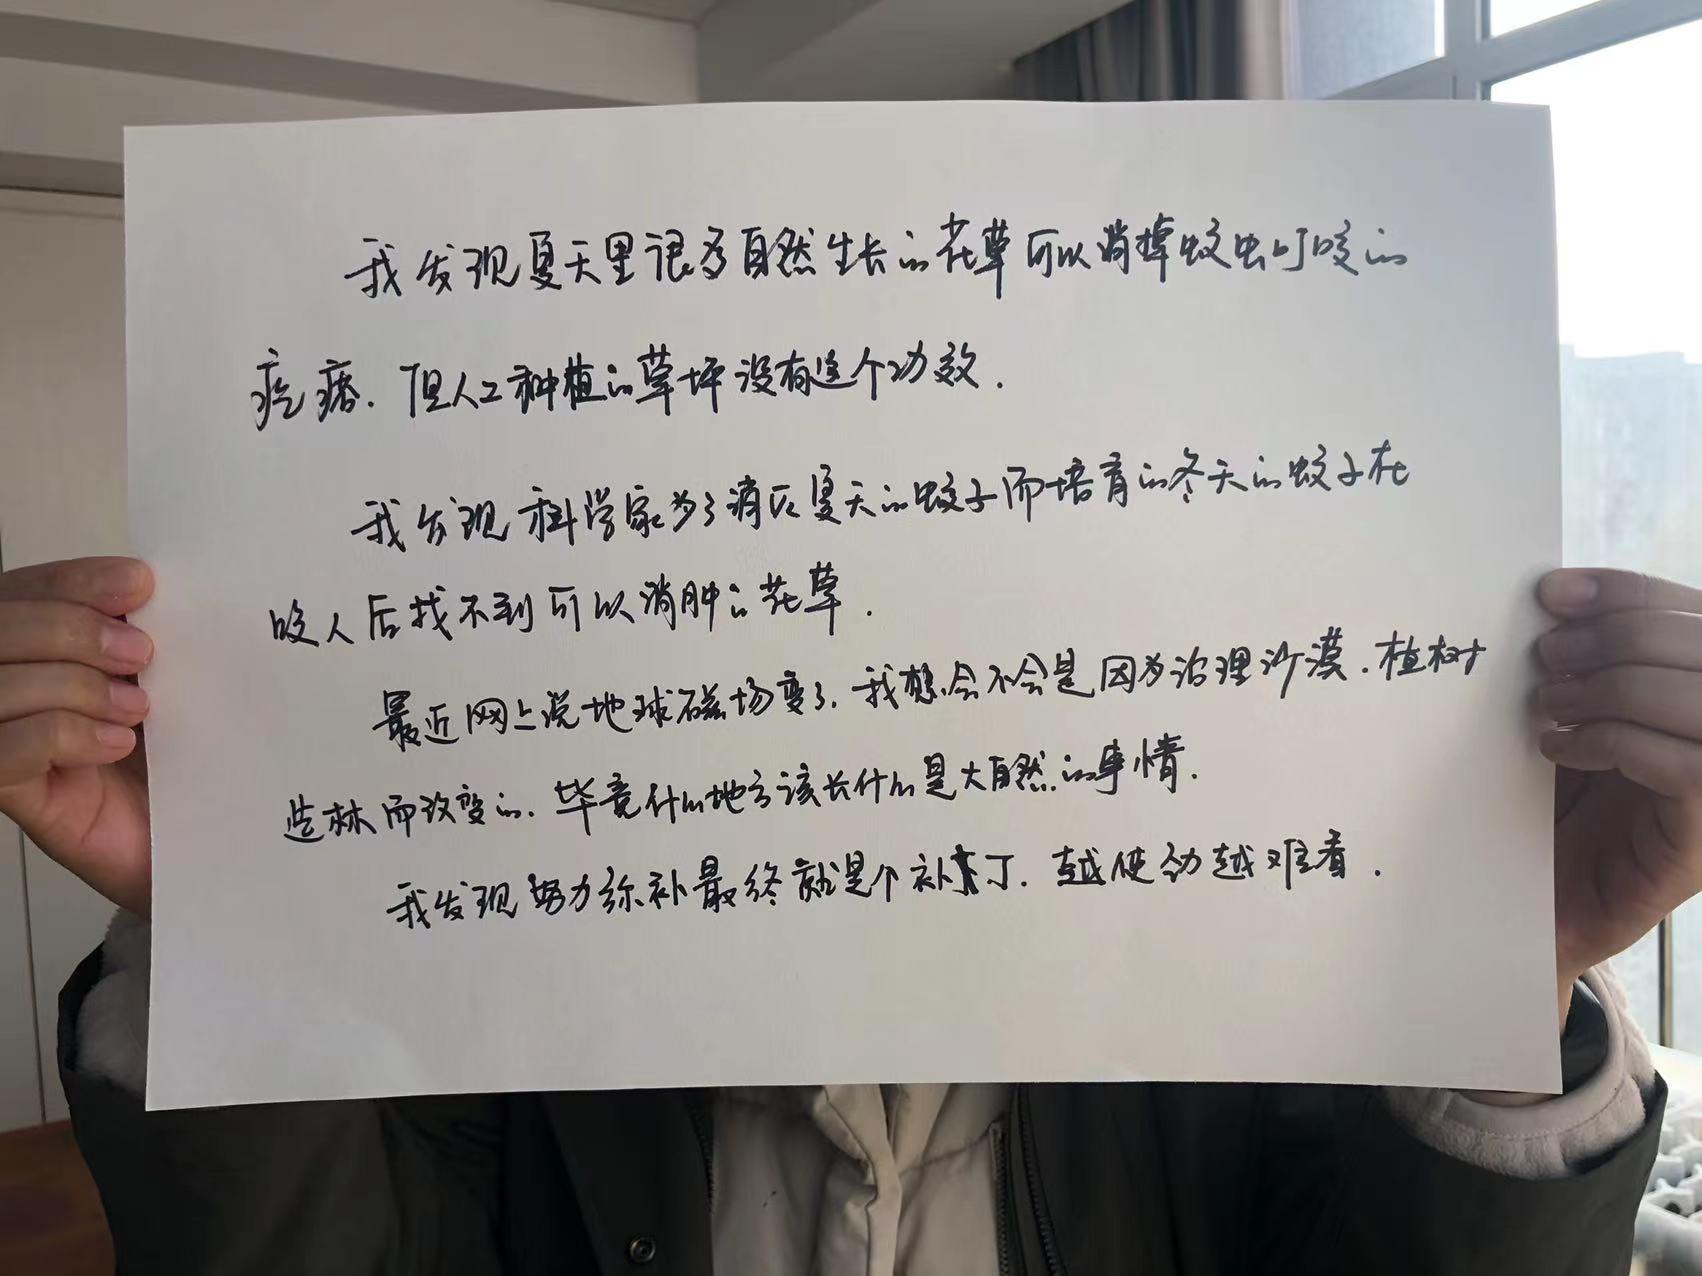 我发现夏天里很多自然生长的花草可以消掉蚊虫叮咬的
疙瘩.但人工种植的草坪没有这个功效.
我发现科学家为了消灭夏天的蚊子而培育的冬天的蚊子在
咬人后找不到可以消肿的花草.
最近网上说地球磁场变了.我想会不会是因为治理沙漠.植树
造林而改变的.毕竟什么地方该长什么是大自然的事情.
我发现努力弥补最终就是个补丁.越使劲越难看.